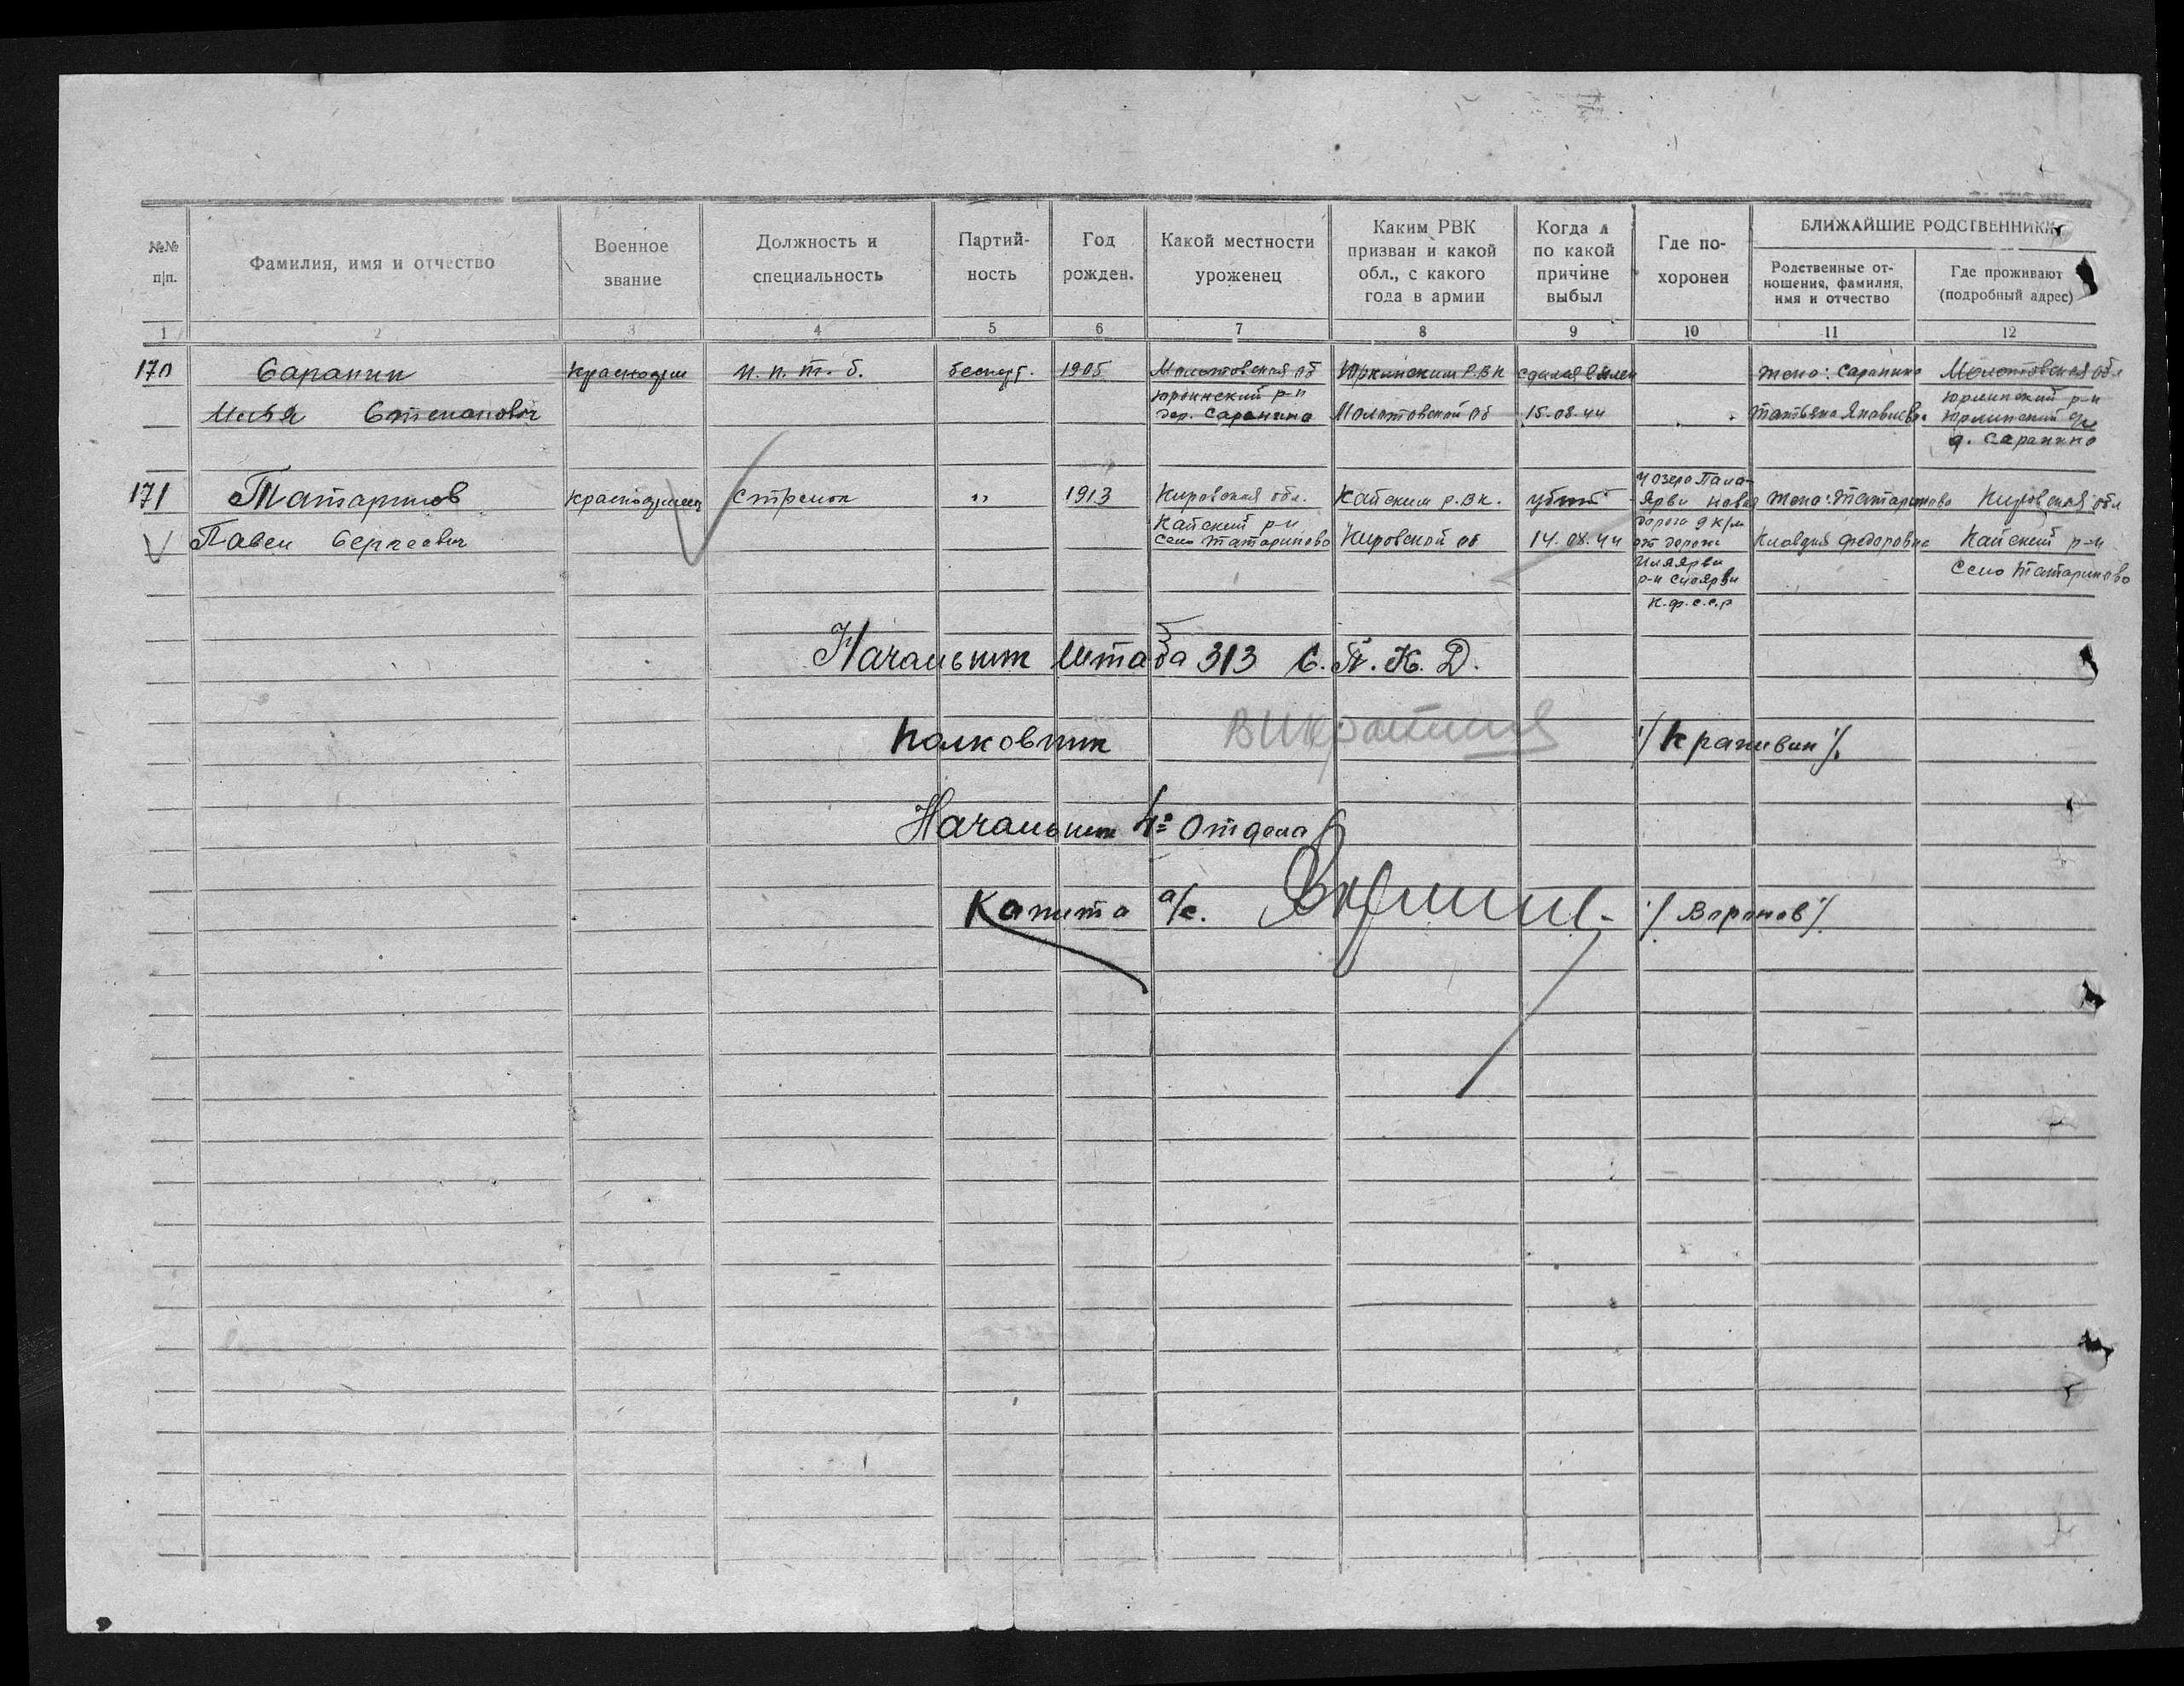 №№ п/п.
Фамилия, имя и отчество
Военное звание
Должность и специальность
Партий-ность
Год рожден.
Какой местности уроженец
Каким РВК призван и какой обл., с какого года в армии
Когда и по какой причине выбыл
Где по-хоронен
БЛИЖАЙШИЕ РОДСТВЕННИКИ
Родственные от-ношения, фамилия, имя и отчество
Где проживают (подробный адрес)
1 2 3 4 5 6 7 8 9 10 11 12
170 Саранин Красноарм п.п.т.б. беспарт. 1905 Молотовская об Юрлинским Р.В.К сдался в плен жена: Саранина Молотовская обл
Юрлинский р-н Юрлинский р-н
Илья Степанович дер. Саранина Молотовской об 15.08.44 Татьяна Юрлинский
д. Саранино
171 Татаринов Красноармеец стрелок " 1913 Кировская обл. Кайским р.в.к. убит У озера Пала-
Ярви новая жена: Татаринова Кировская обл
Кайский р-н дорога 9 к/м
Павел Сергеевич село Татариново Кировской об 14.08.44 от дороги Клавдия Федоровна Кайский р-н
Иляярви село Татариново
р-н Суоярви
К.ф.с.с.р
Начальник Штаба 313 С.П.К.Д.
Полковник /Крапивин/.
Начальник 4º отдела
Капитан а/с. /Воронов/.